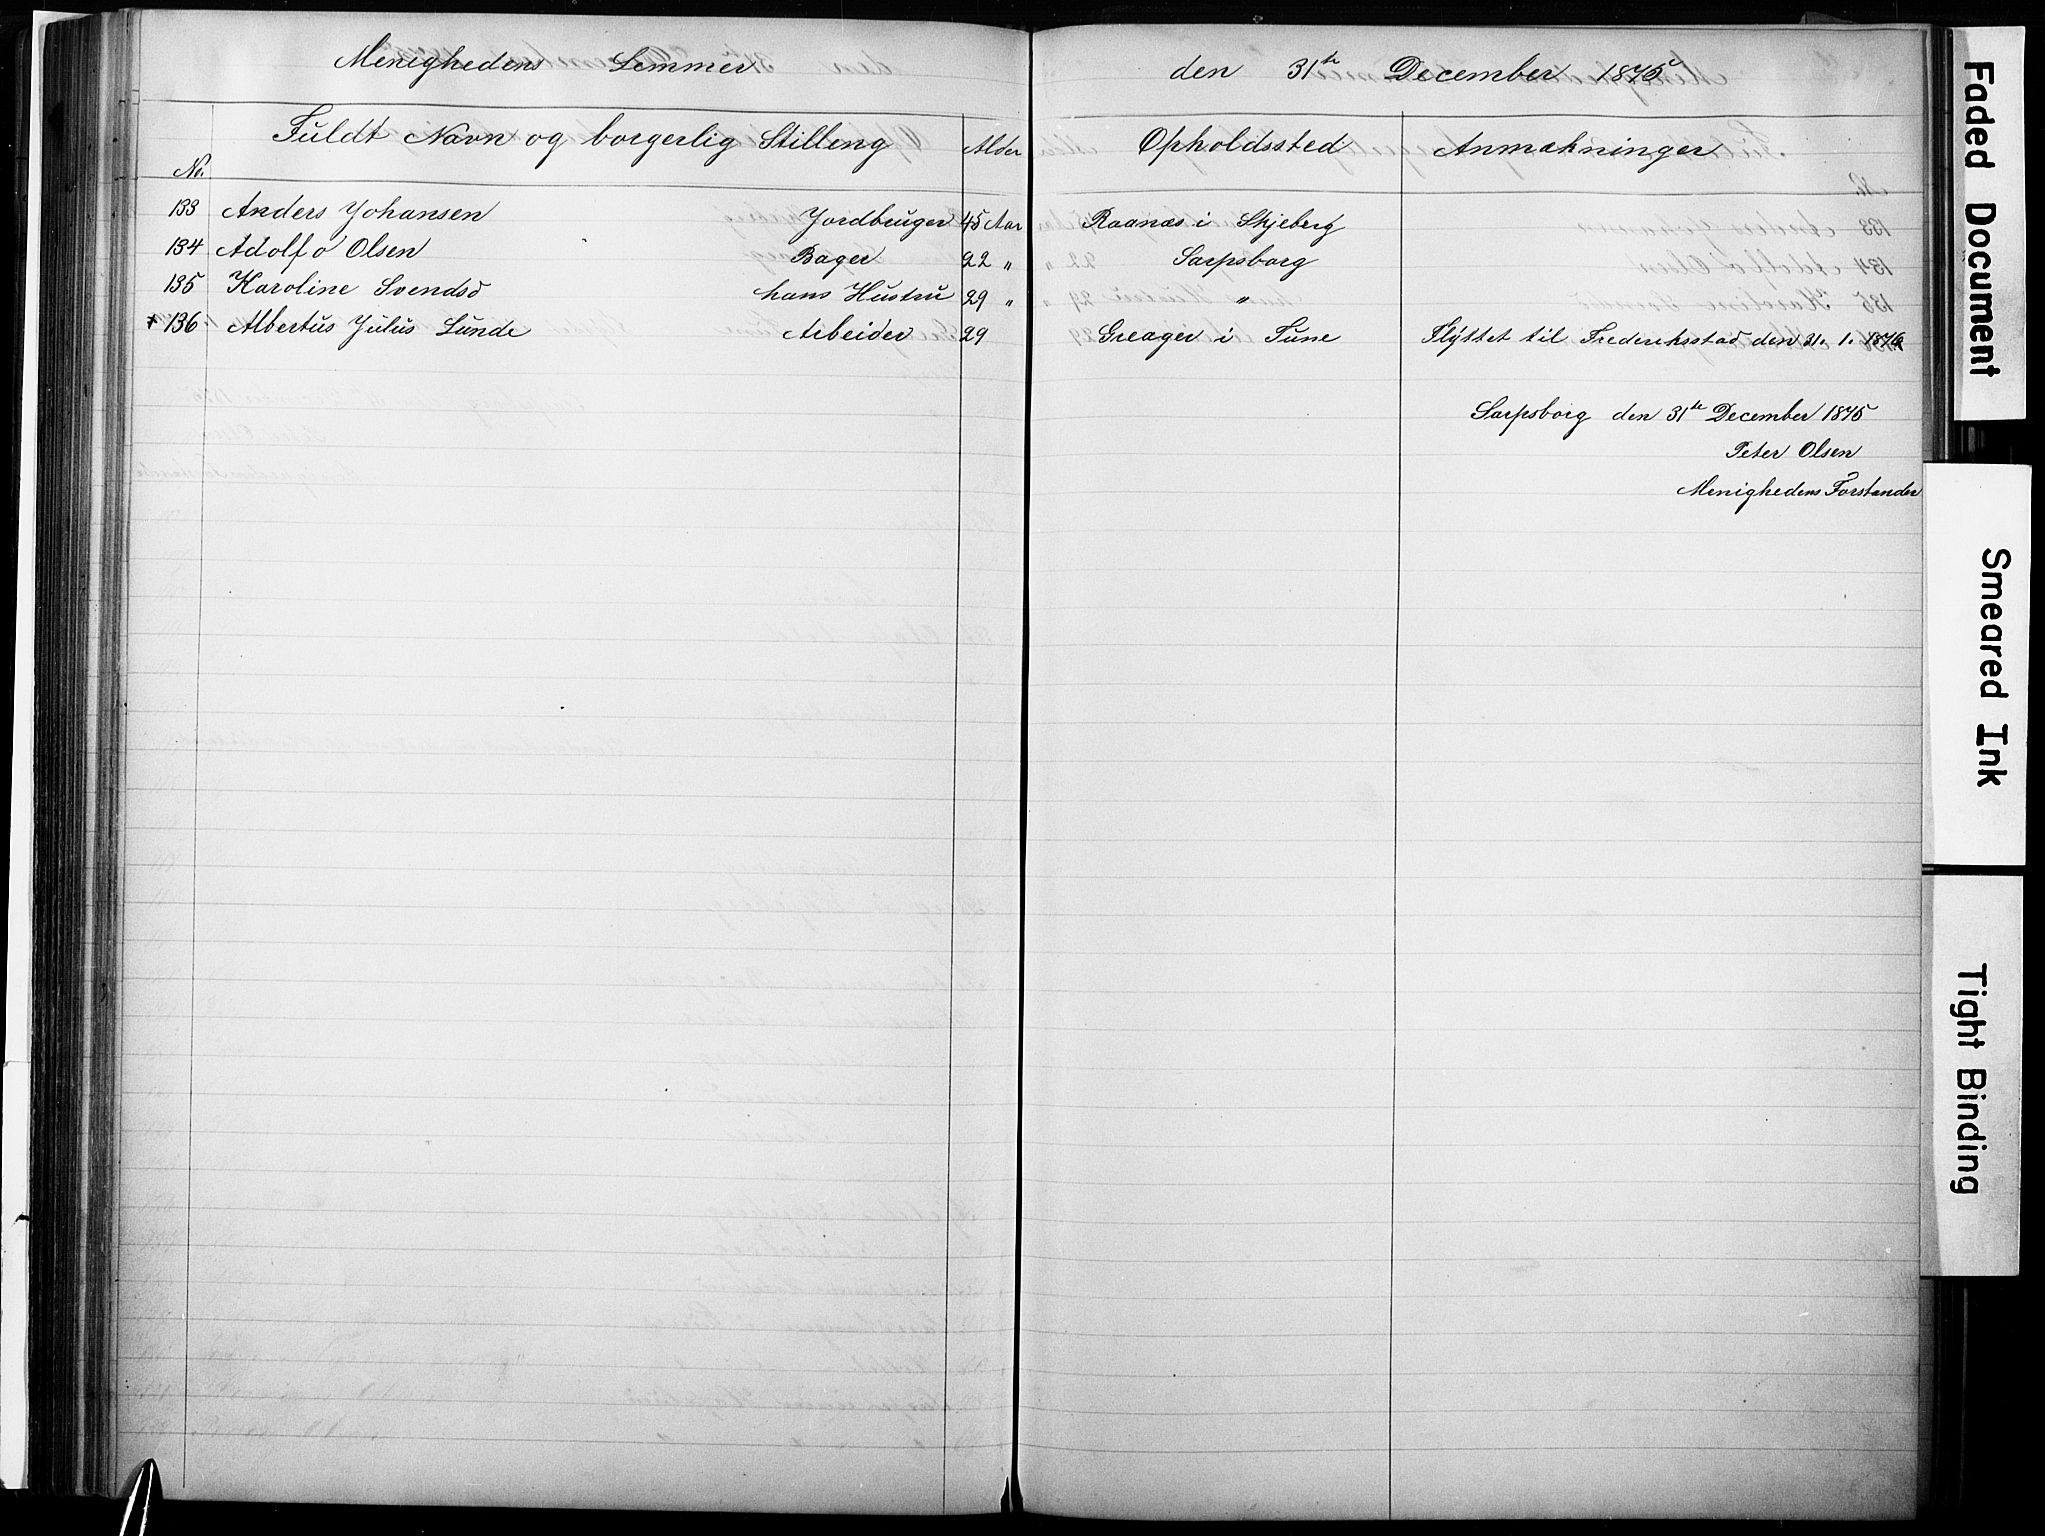 Menighedens Lemmer den 31te December 1875
No. Fuldt Navn og borgerlig Stilling Alder Opholdssted Anmækninger
133 Anders Johansen Jordbruger 45 Aar Raanæs i Skjeberg
134 Adolf O Olsen Bager 22 " Sarpsborg
135 Karoline Svendsd hans Hustru 29 " "
+ 136 Albertus Julus Lunde Arbeider 29 Greager i Tune Flyttet til Frederiksstad den 31. 1. 1876
Sarpsborg den 31te December 1875
Peter Olsen
Menighedens Forstander
Faded Document
Smeared Ink
Tight Binding